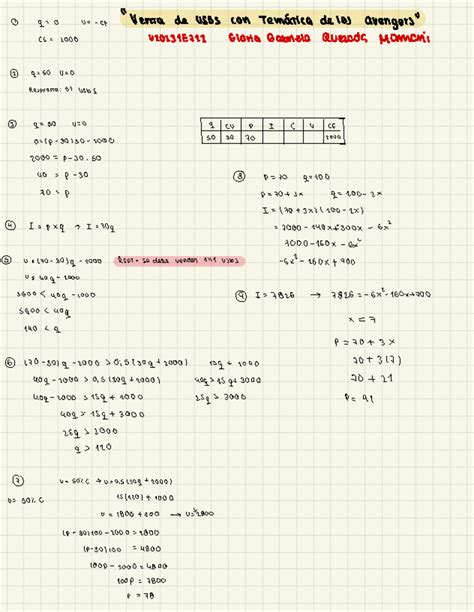 "Venta de USBS con Temática de los Avangers"
① q = 0 u = -CF
CF = 2000
U20231E212 Gloria Gabriela Quezada Mamani
② q = 50 u = 0
Respuesta: 51 USBS
③ q = 50 u = 0
0 = (p-30)50 - 2000
2000 = p-30.50
40 = p-30
70 = p
q CU P I C U CF
50 30 70 2000
④ I = p x q → I = 70q
⑤ u = (70-30)q - 2000
se debe vender 141 USBS
u = 40q - 2000
3600 < 40q - 2000
5600 < 40q
140 < q
⑥ (70-30)q - 2000 > 0,5 (30q + 2000)
15q + 1000
40q - 2000 > 0,5 (30q + 2000)
40q > 15q + 3000
40q - 2000 > 15q + 1000
25q > 3000
40q > 15q + 3000
25q > 3000
q > 120
⑦ u = 50% C → u = 0,5 (30q + 2000)
u = 50% C
15(120) + 1000
u = 1800 + 100 → u = 2800
(p-30)100 - 2000 = 2800
(p-30)100 = 4800
100p - 3000 = 4800
100p = 7800
p = 78
⑧ p = 70 q = 100
p = 70 + 3x q = 100 - 2x
I = (70 + 3x)(100 - 2x)
= 7000 - 140x + 300x - 6x²
7000 - 160x - 6x²
-6x² - 160x + 700
⑨ I = 7826 → 7826 = -6x² - 160x + 700
x = 7
p = 70 + 3x
70 + 3(7)
70 + 21
p = 91